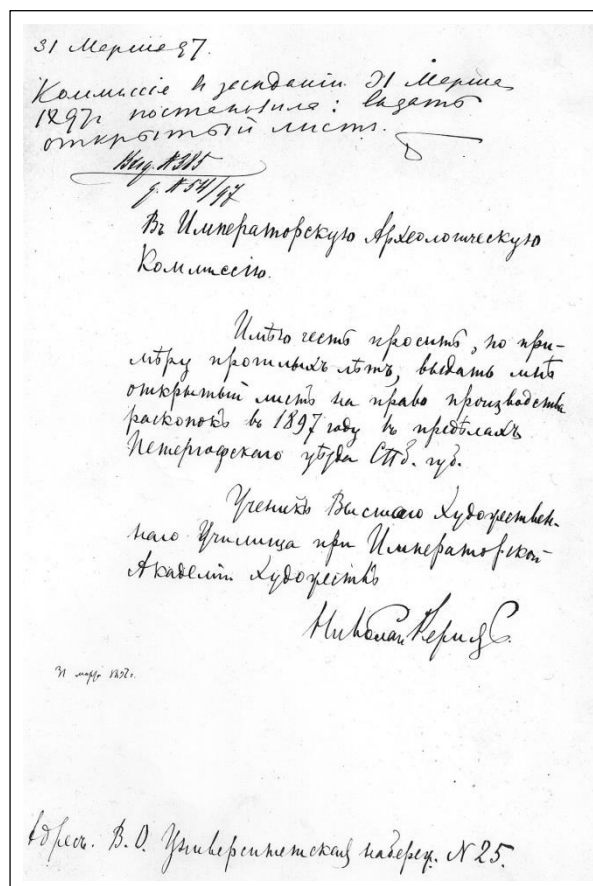 31 Марта 97.
Коммиссія в заседании 31 Марта
1897 г. постановила: выдать
открытый листъ.
Выд. № 385
д. № 54/97
Въ Императорскую Археологическую
Коммиссію.
Имѣю честь просить, по при-
мѣру прошлыхъ лѣтъ, выдать мнѣ
открытый листъ на право производства
раскопокъ въ 1897 году въ предѣлахъ
Петергофскаго уѣзда СПб. губ.
Ученикъ Высшаго Художествен-
наго Училища при Императорской
Академіи Художествъ
Николай Рерихъ.
31 марта 1897 г.
Адресъ. В. О. Университетская набереж. № 25.